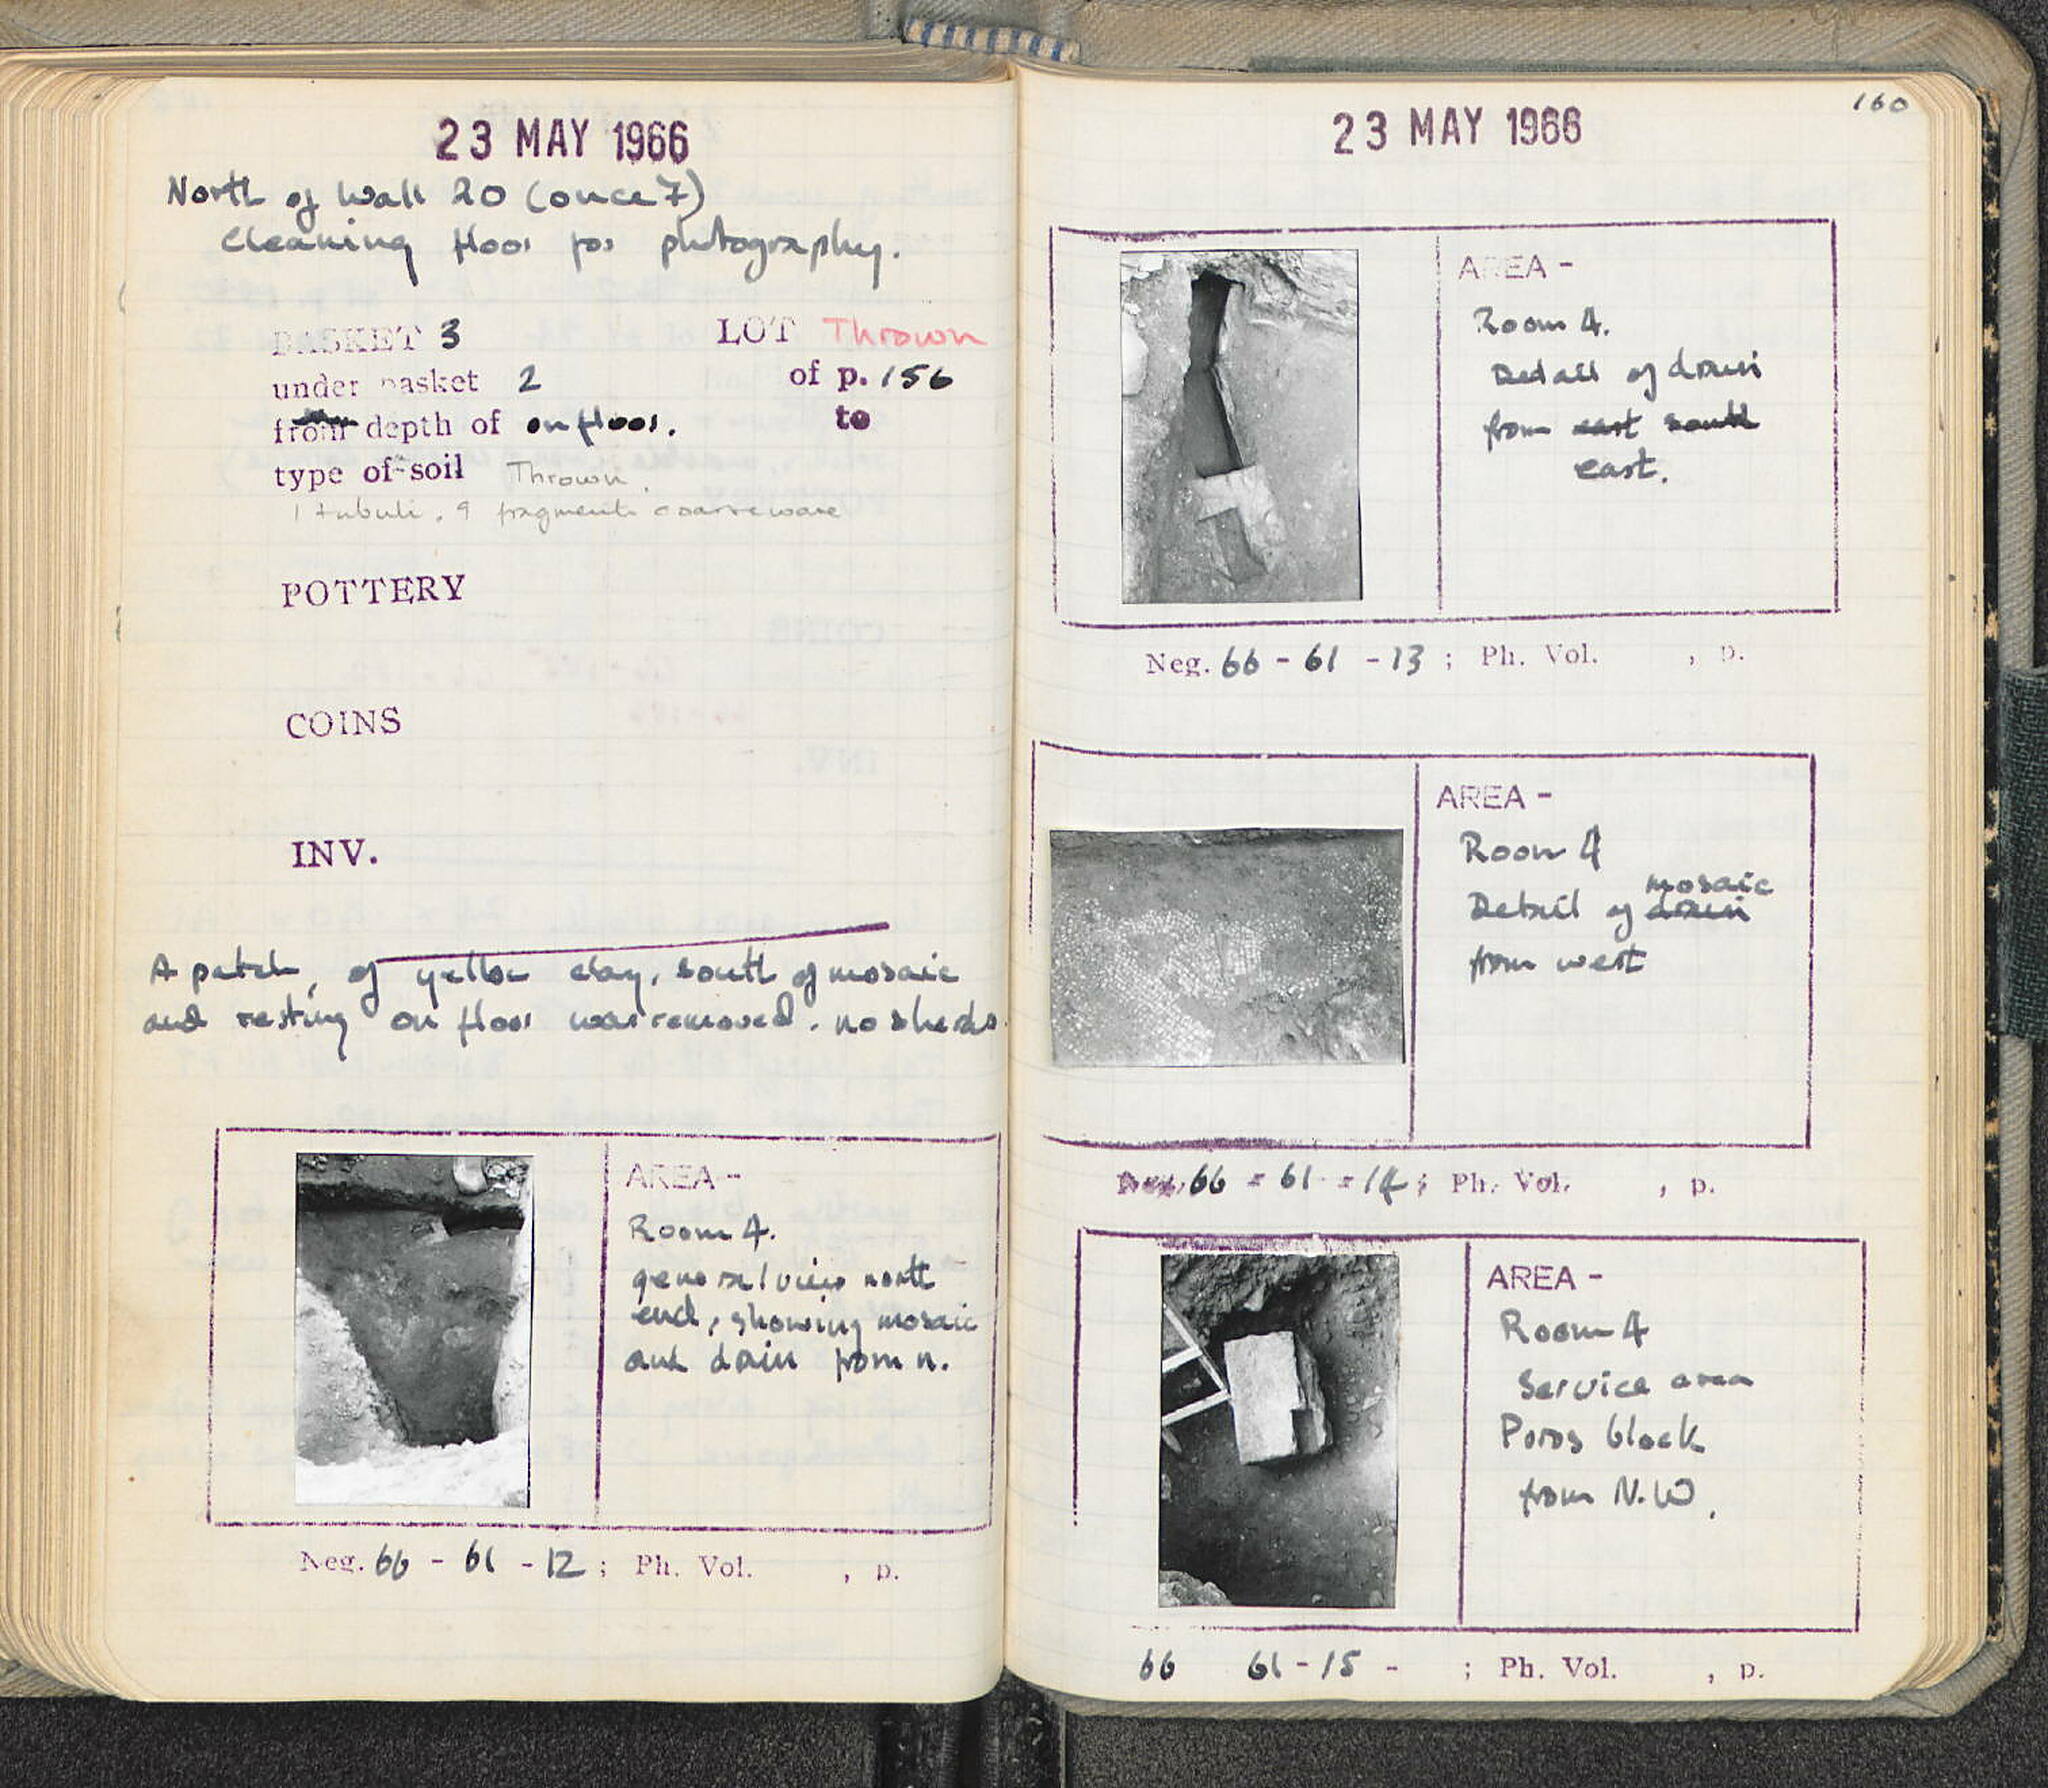 23 MAY 1966
North of Wall 20 (once 7)
Cleaning floor for photography.
BASKET 3 LOT Thrown
under basket 2 of p. 156
from depth of on floor. to
type of soil Thrown.
1 tubuli, 9 fragments coarseware
POTTERY
COINS
INV.
A patch, of yellow clay, south of mosaic
and resting on floor was removed. no sherds.
AREA-
Room 4.
general view north
end, showing mosaic
and drain from n.
Neg. 66 - 61 - 12 ; Ph. Vol. , p.
160
23 MAY 1966
AREA -
Room 4.
Detail of drain
from east south
east.
Neg. 66 - 61 - 13 ; Ph. Vol. , p.
AREA -
Room 4
mosaic
Detail of drain
from west
Neg. 66 - 61 - 14 ; Ph. Vol. , p.
AREA -
Room 4
Service area
Poros block
from N.W.
66 61 - 15 - ; Ph. Vol. , p.